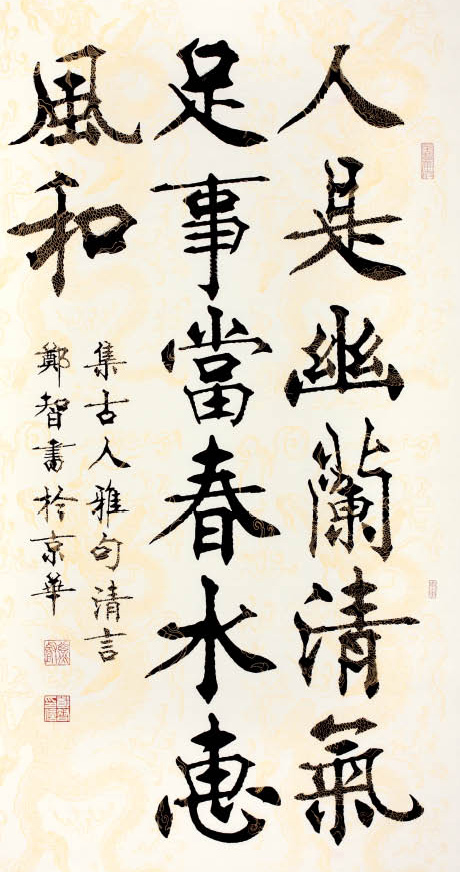 人是幽蘭清氣
足事當春水惠
風和
集古人雅句清言
鄭智書於京華